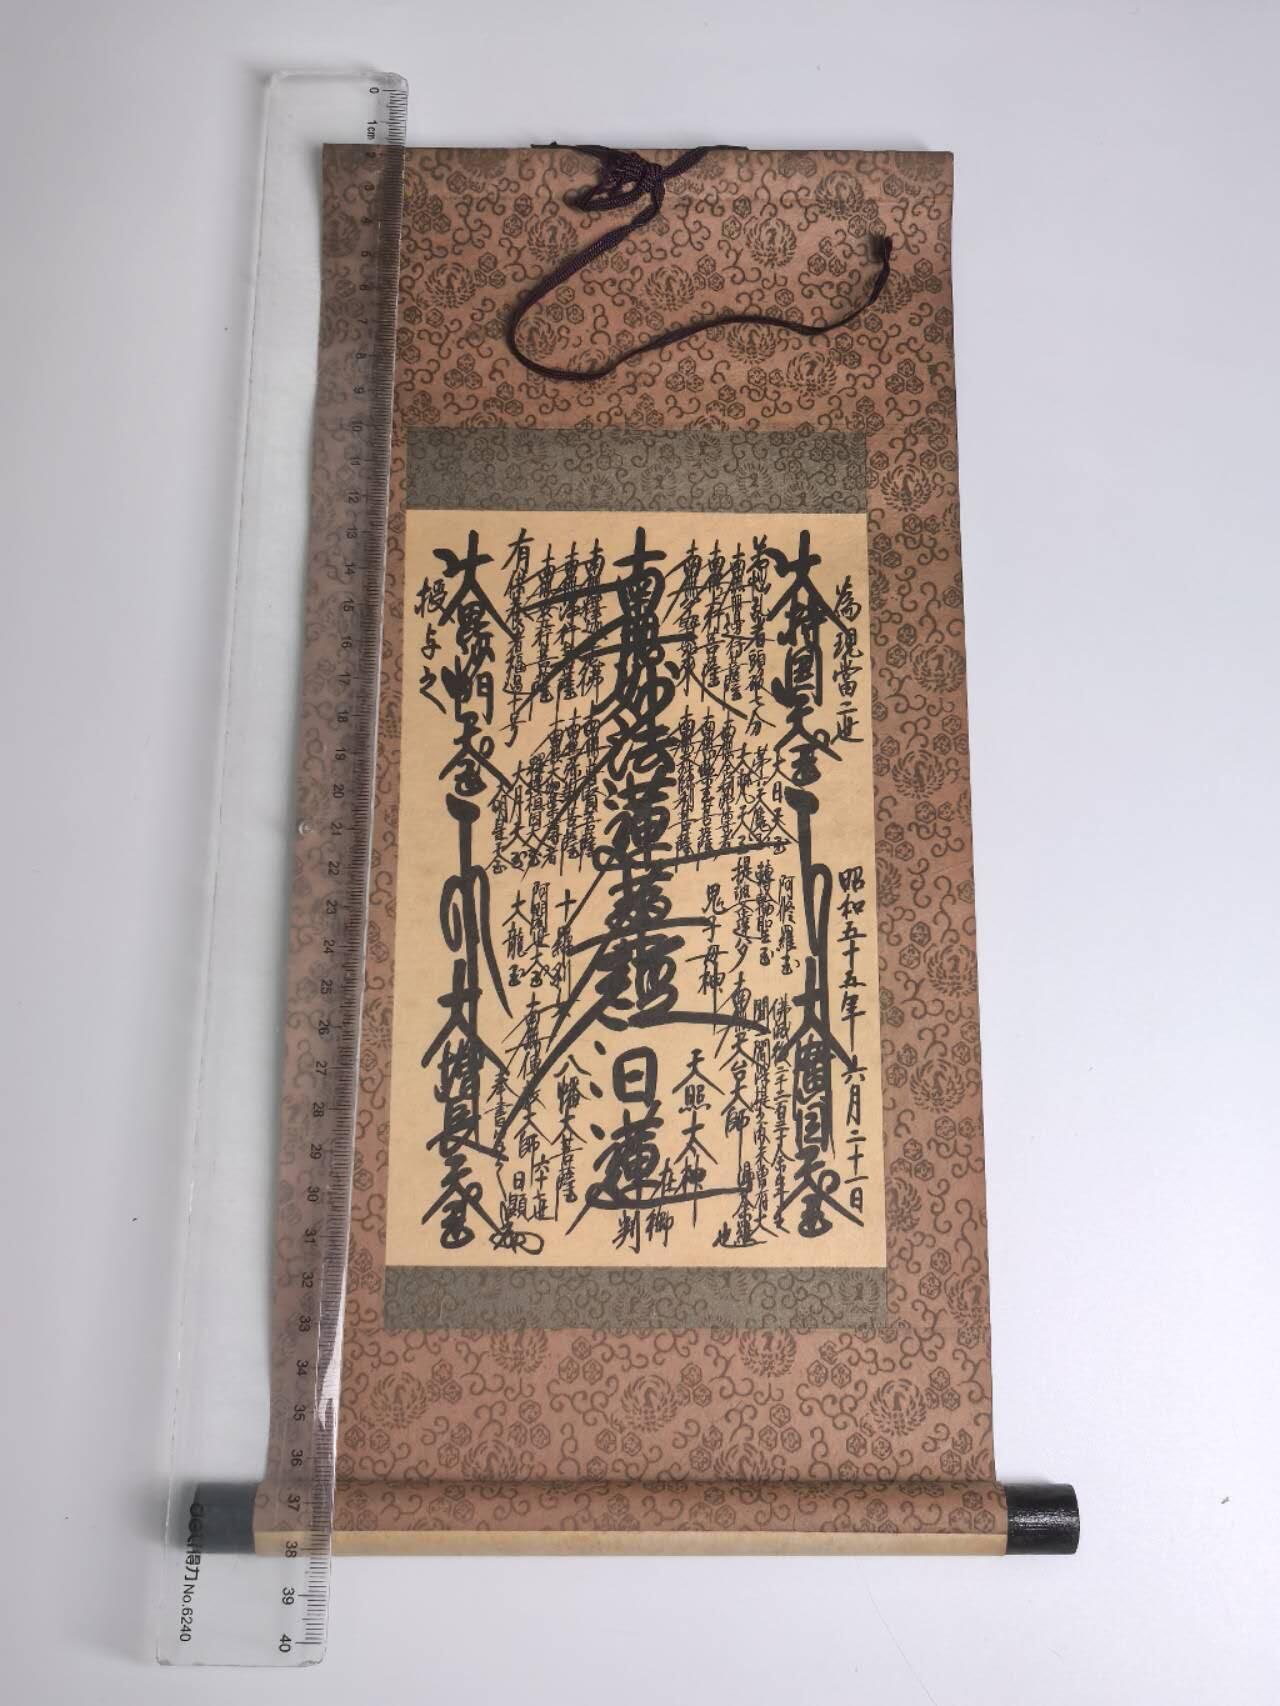 為現當二世
昭和五十五年六月二十一日
大持国天王
大廣目天王
若悩乱者頭破七分
大日天王
第六天魔王
大梵天王
阿修羅王
轉輪聖王
提婆達多
佛滅後二千二百三十余年之
間一閻浮提之内未曽有大
漫荼羅
也
南無無邊行菩薩
南無上行菩薩
南無多寳如来
南無舎利弗尊者
南無薬王菩薩
南無文殊師利菩薩
鬼子母神
南無天台大師
天照太神
南無妙法蓮華經
日蓮
在御
判
南無釋迦牟尼佛
南無浄行菩薩
南無安立行菩薩
有供養者福過十号
南無普賢菩薩
南無弥勒菩薩
南無大迦葉尊者
釋提桓因大王
大月天王
大明星天王
十羅刹女
阿闍世大王
大龍王
八幡大菩薩
南無傳教大師
六十七世
日顕
奉書写之
大毘沙門天王
大増長天王
授与之
0
1cm
2
3
4
5
6
7
8
9
10
11
12
13
14
15
16
17
18
19
20
21
22
23
24
25
26
27
28
29
30
31
32
33
34
35
36
37
38
39
40
deli得力 No.6240